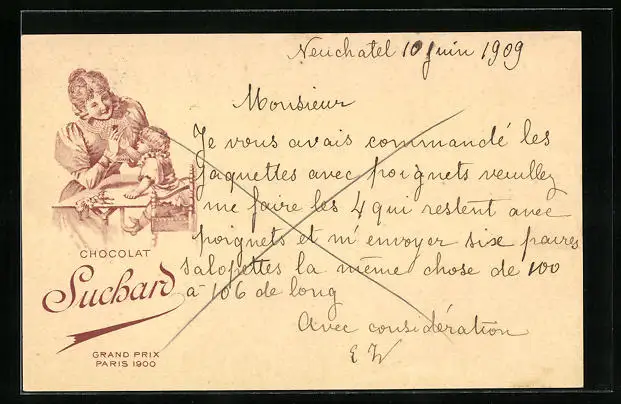 Neuchatel 10 Juin 1909
Monsieur
Je vous avais commandé les
jaquettes avec poignets veuillez
me faire les 4 qui restent avec
poignets et m'envoyer six paires
salopettes la même chose de 100
à 106 de long
Avec considération
E W
CHOCOLAT
Suchard
GRAND PRIX
PARIS 1900